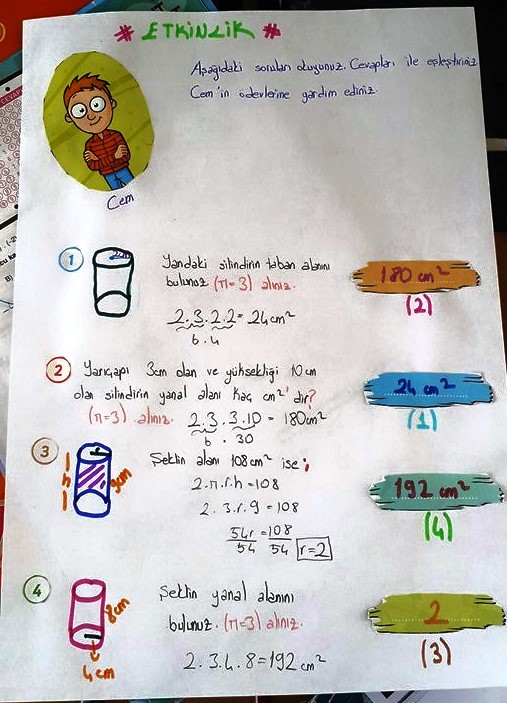 * ETKİNLİK *
Aşağıdaki soruları okuyunuz. Cevapları ile eşleştiriniz
Cem'in ödevlerine yardım ediniz.
Cem
1 Yandaki silindirin taban alanını
bulunuz (π=3) alınız.
2.3.2.2=24cm²
6.4
180 cm²
(2)
2 Yarıçapı 3cm olan ve yüksekliği 10cm
olan silindirin yanal alanı kaç cm² dir?
(π=3) alınız. 2.3.3.10=180cm²
6.30
24 cm²
(1)
3 Şeklin alanı 108cm² ise;
h 9cm
2.π.r.h=108
2.3.r.9=108
54r=108
54 54 r=2
192 cm²
(4)
4 Şeklin yanal alanını
bulunuz. (π=3) alınız.
8cm
4cm
2.3.4.8=192cm²
2
(3)